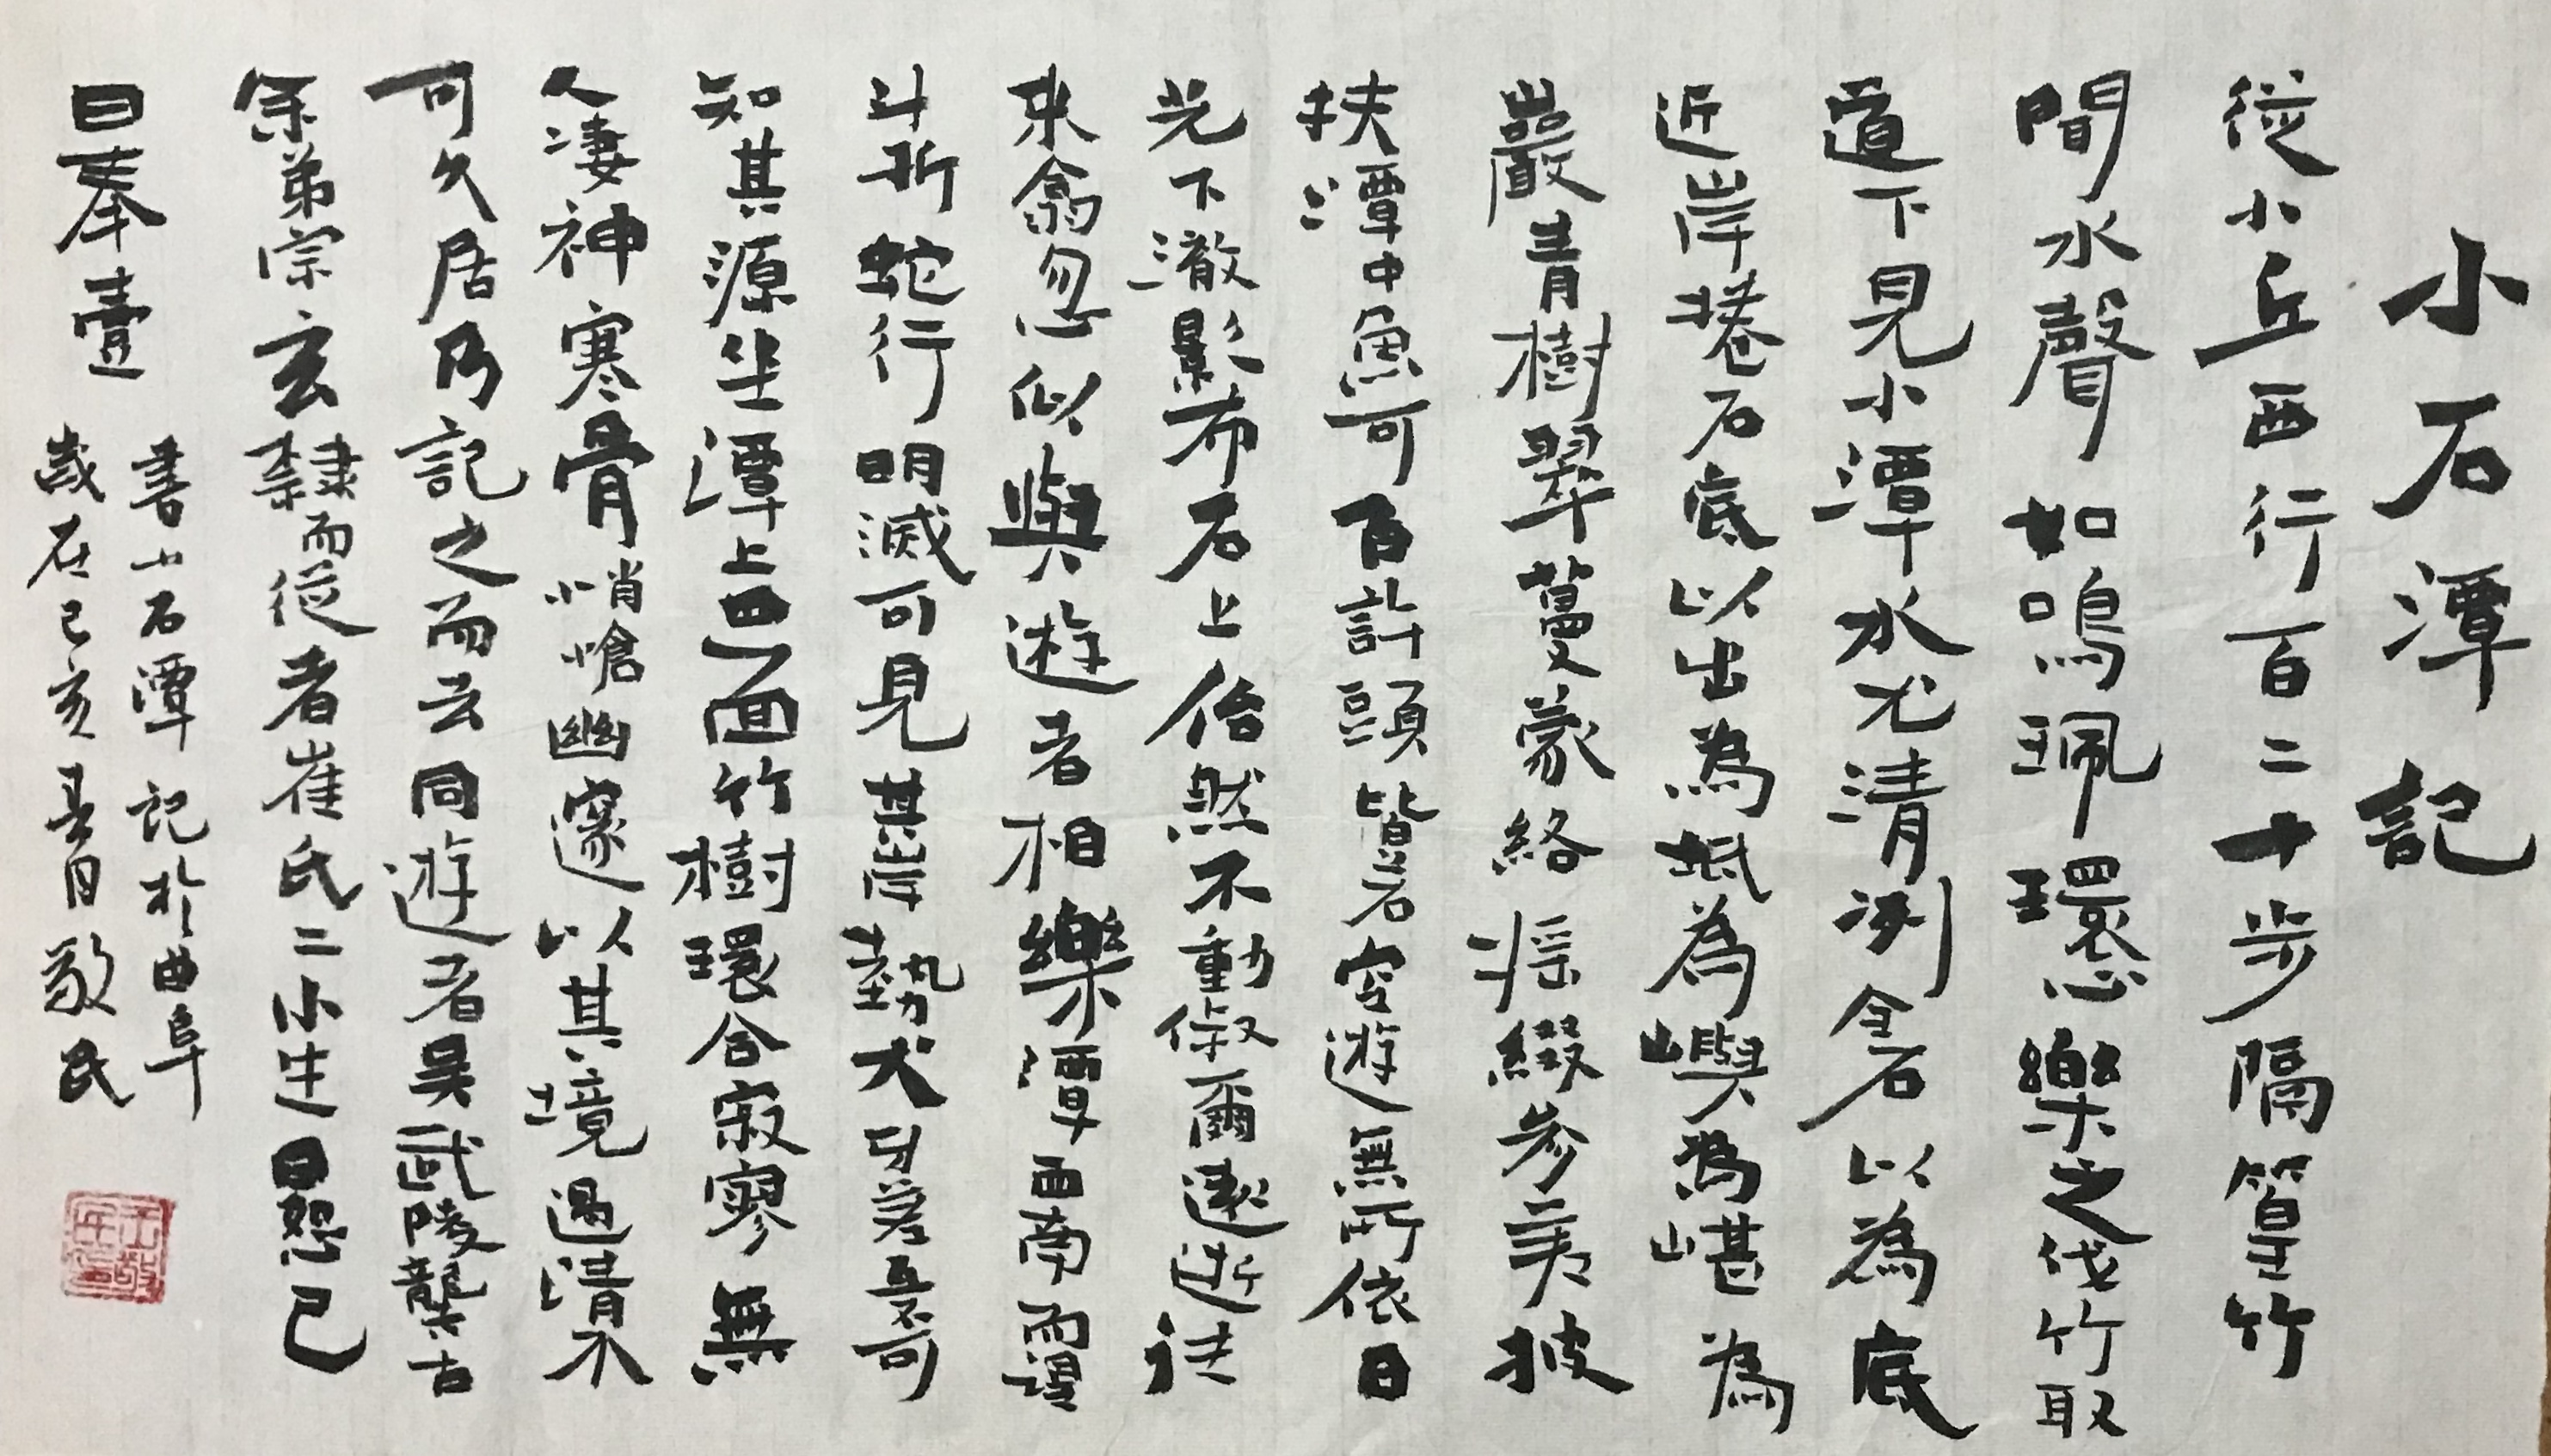 小石潭記
從小丘西行百二十步隔篁竹
聞水聲如鳴珮環心樂之伐竹取
道下見小潭水尤清洌全石以為底
近岸捲石底以出為坻為嶼為嵁為
巖青樹翠蔓蒙絡搖綴參差披
扶潭中魚可百許頭皆若空遊無所依日
光下澈影布石上佁然不動俶爾遠逝往
來翕忽似與遊者相樂潭西南而望
斗折蛇行明滅可見其岸勢犬牙差互不可
知其源坐潭上四面竹樹環合寂寥無
人淒神寒骨悄愴幽邃以其境過清不
可久居乃記之而去同遊者吳武陵龔古
余弟宗玄隸而從者崔氏二小生曰恕己
曰奉壹
書小石潭記於曲阜
歲在己亥春月敬民